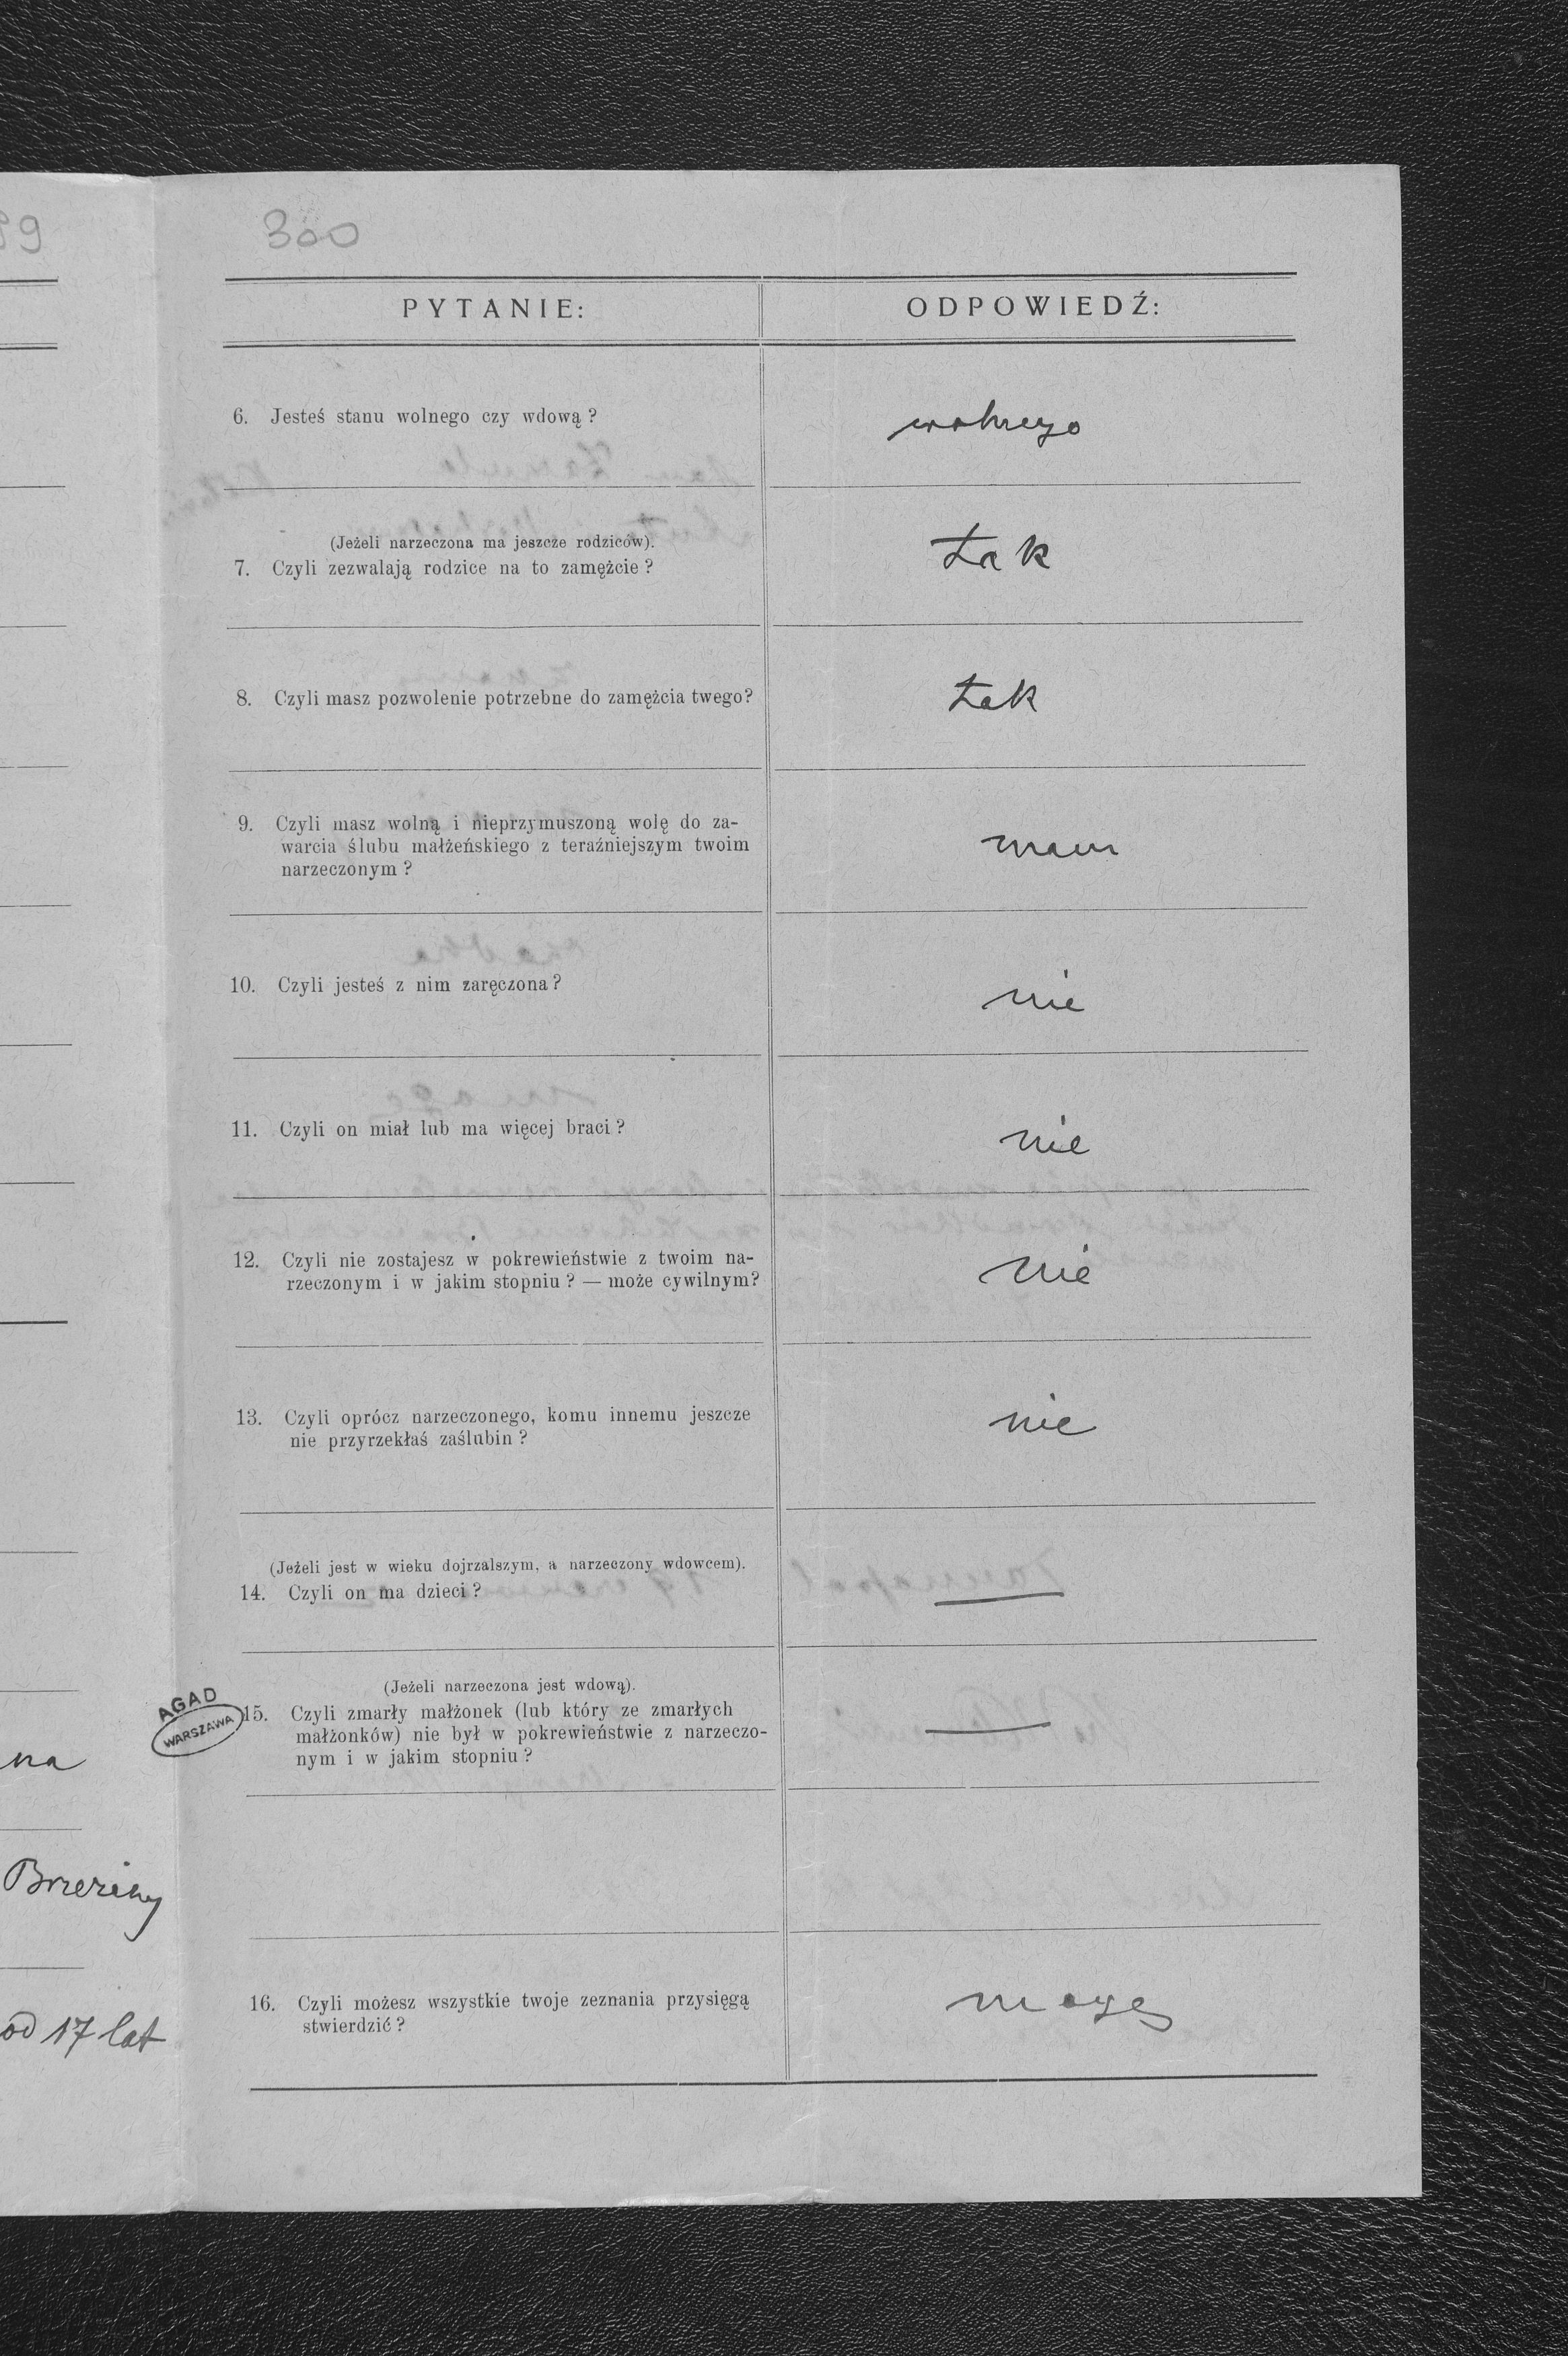 99
300
PYTANIE:
ODPOWIEDŹ:
6. Jesteś stanu wolnego czy wdową?
wolnego
(Jeżeli narzeczona ma jeszcze rodziców).
7. Czyli zezwalają rodzice na to zamężcie?
tak
8. Czyli masz pozwolenie potrzebne do zamężcia twego?
tak
9. Czyli masz wolną i nieprzymuszoną wolę do za-
warcia ślubu małżeńskiego z teraźniejszym twoim
narzeczonym?
mam
10. Czyli jesteś z nim zaręczona?
nie
11. Czyli on miał lub ma więcej braci?
nie
12. Czyli nie zostajesz w pokrewieństwie z twoim na-
rzeczonym i w jakim stopniu? — może cywilnym?
nie
13. Czyli oprócz narzeczonego, komu innemu jeszcze
nie przyrzekłaś zaślubin?
nie
(Jeżeli jest w wieku dojrzalszym, a narzeczony wdowcem).
14. Czyli on ma dzieci?
—
AGAD
WARSZAWA
(Jeżeli narzeczona jest wdową).
15. Czyli zmarły małżonek (lub który ze zmarłych
małżonków) nie był w pokrewieństwie z narzeczo-
nym i w jakim stopniu?
—
na
Brzeziny
16. Czyli możesz wszystkie twoje zeznania przysięgą
stwierdzić?
mogę
od 17 lat